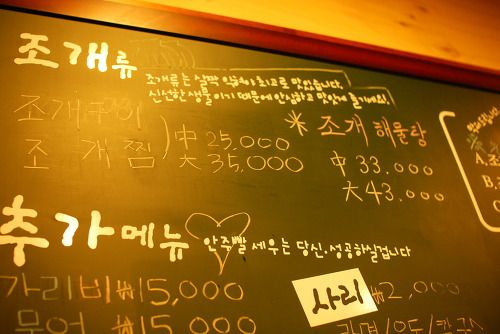 조개류
조개류는 살짝 익혀야 최고로 맛있습니다.
신선한 생물이기 때문에 안심하고 맛있게 즐기세요!
조개구이
조개찜
中 25,000
大 35,000
※ 조개 해물탕
中 33.000
大 43.000
A.조
B.
추가메뉴
안주빨 세우는 당신, 성공하실겁니다
가리비 ₩15,000
문어 ₩15,000
사리 ₩2,000